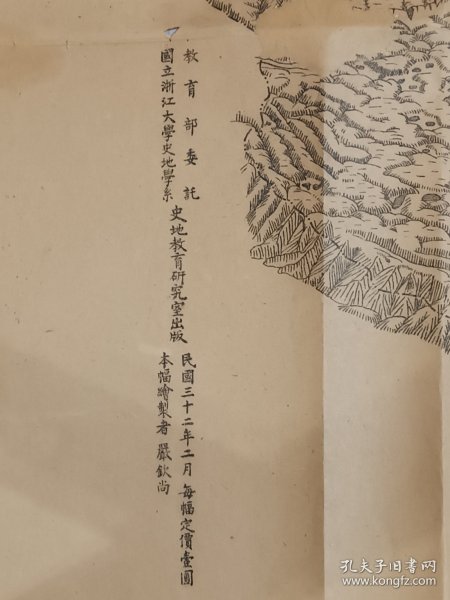 教育部委託
國立浙江大學史地學系
史地教育研究室出版
民國三十二年二月 每幅定價壹圓
本幅繪製者 嚴欽尚
孔夫子旧书网
www.kongfz.com